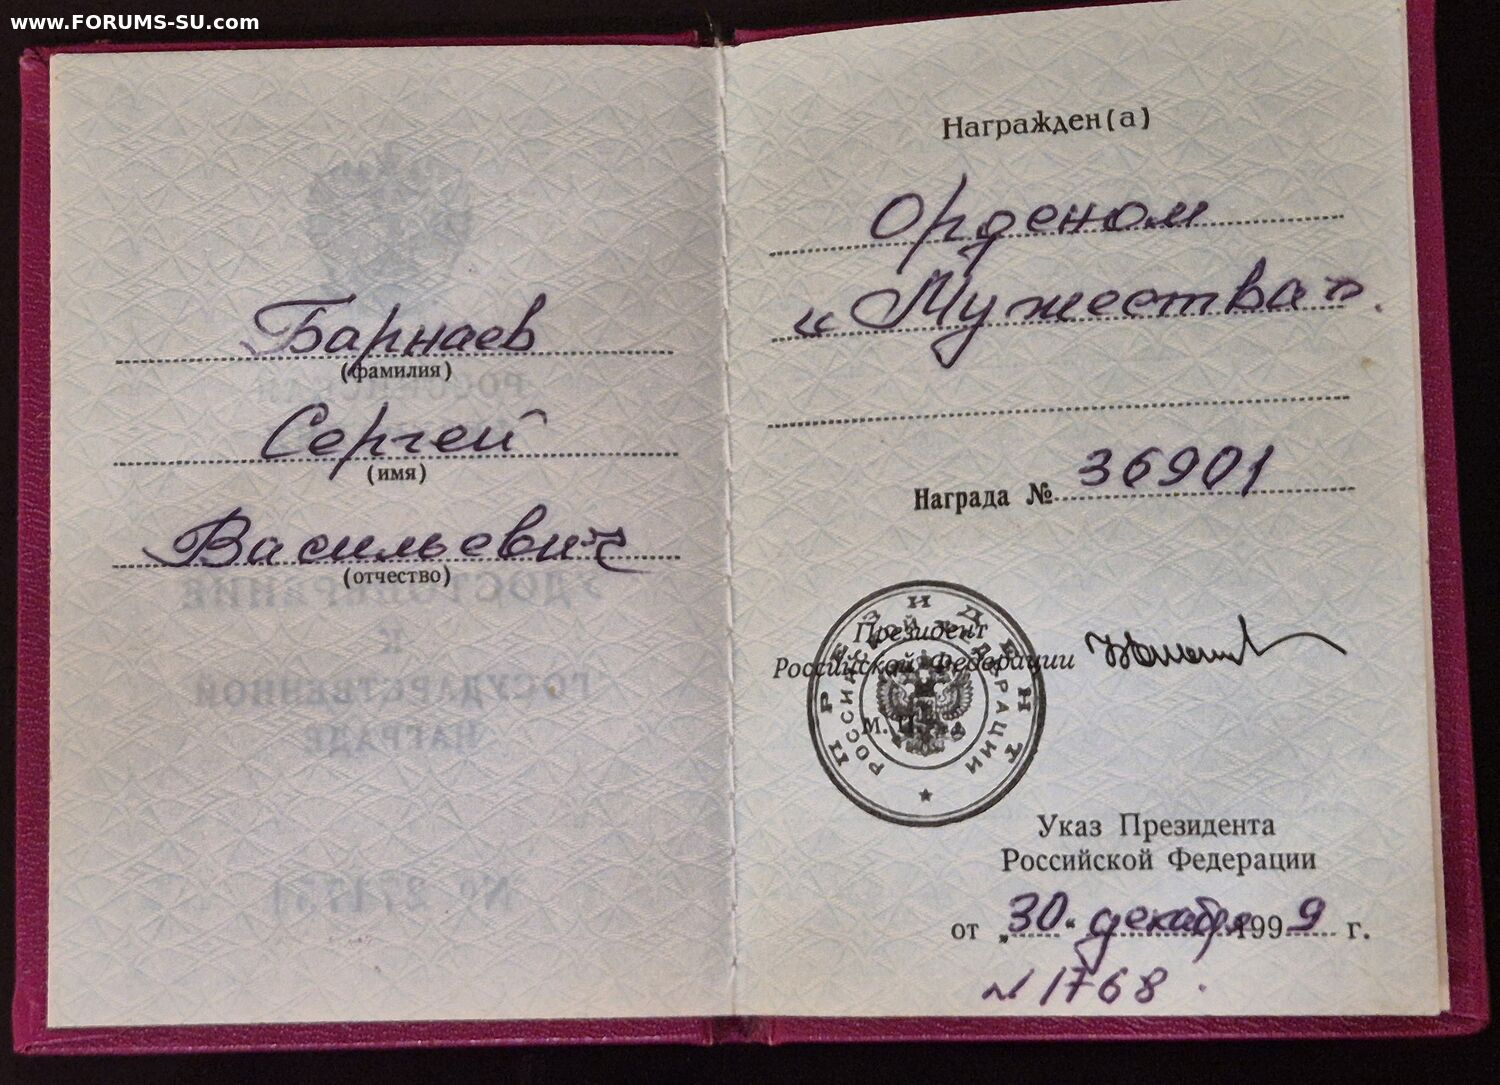 www.FORUMS-SU.com
Барнаев
(фамилия)
Сергей
(имя)
Васильевич
(отчество)
УДОСТОВЕРЕНИЕ
К
ГОСУДАРСТВЕННОЙ
НАГРАДЕ
Награжден(а)
Орденом
«Мужества».
Награда № 36901
Президент
Российской Федерации
М.П.
ПРЕЗИДЕНТ
РОССИЙСКОЙ ФЕДЕРАЦИИ
Указ Президента
Российской Федерации
от „30“ декабря 1999 г.
N 1768.